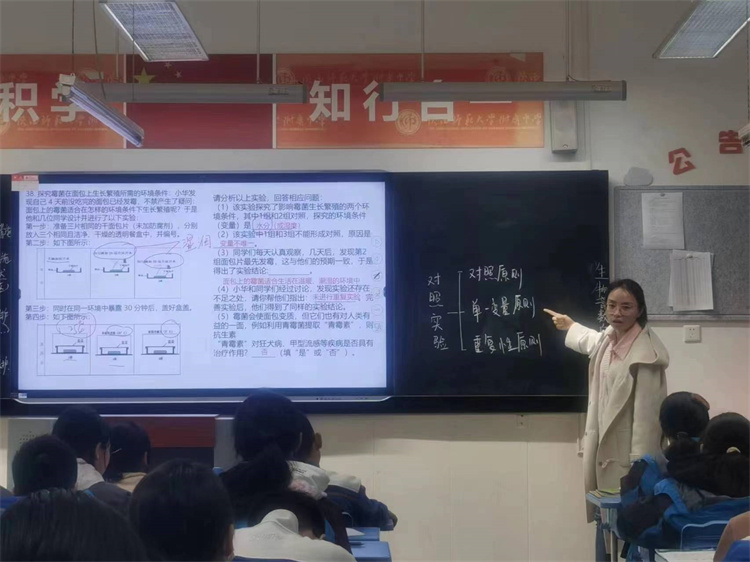 积学
知行合一
公告
38. 探究霉菌在面包上生长繁殖所需的环境条件:小华发
现自己4天前没吃完的面包已经发霉,不禁产生了疑问:
面包上的霉菌适合在怎样的环境条件下生长繁殖呢?于是
他和几位同学设计并进行了以下实验:
第一步:准备三片相同的干面包片(未加防腐剂),分别
放入三个相同且洁净、干燥的透明餐盒中,并编号。
第二步:如下图所示
第三步:同时在同一环境中暴露30分钟后,盖好盒盖。
第四步:如下图所示
请分析以上实验,回答相应问题:
(1)该实验探究了影响霉菌生长繁殖的两个环
境条件,其中1组和2组对照,探究的环境条件
(变量)是
(2)该实验中1组和3组不能形成对照,原因是
变量不唯一。
(3)同学们每天认真观察,几天后,发现第2
组面包片最先发霉,这与他们的预期一致,于是
得出了实验结论:
面包上的霉菌适合生活在温暖、潮湿的环境中
(4)小华和同学们经过讨论,发现实验还存在
不足之处,请你帮他们指出:未进行重复实验 完
善实验后,他们得到了同样的实验结论。
(5)霉菌会使面包变质,但它们也有对人类有
益的一面,例如利用青霉菌提取“青霉素”,则
抗生素
“青霉素”对狂犬病、甲型流感等疾病是否具有
治疗作用? 否 (填“是”或“否”)。
对照实验
对照原则
单一变量原则
重复性原则